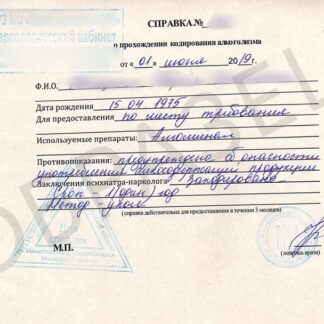 УЗ МО
наркологический кабинет
СПРАВКА №
о прохождении кодирования алкоголизма
от « 01 » июля 2019 г.
Ф.И.О.
Дата рождения 15 04 1975
Для предоставления: по месту требования
Используемые препараты:
Противопоказания: предупреждена об опасности
употребления спиртосодержащей продукции
Заключения психиатра-нарколога Закодирована
Срок 1 (один) год
Метод - укол
(справка действительна для предоставления в течение 3 месяцев)
М.П.
(подпись врача)
OBRAZEL